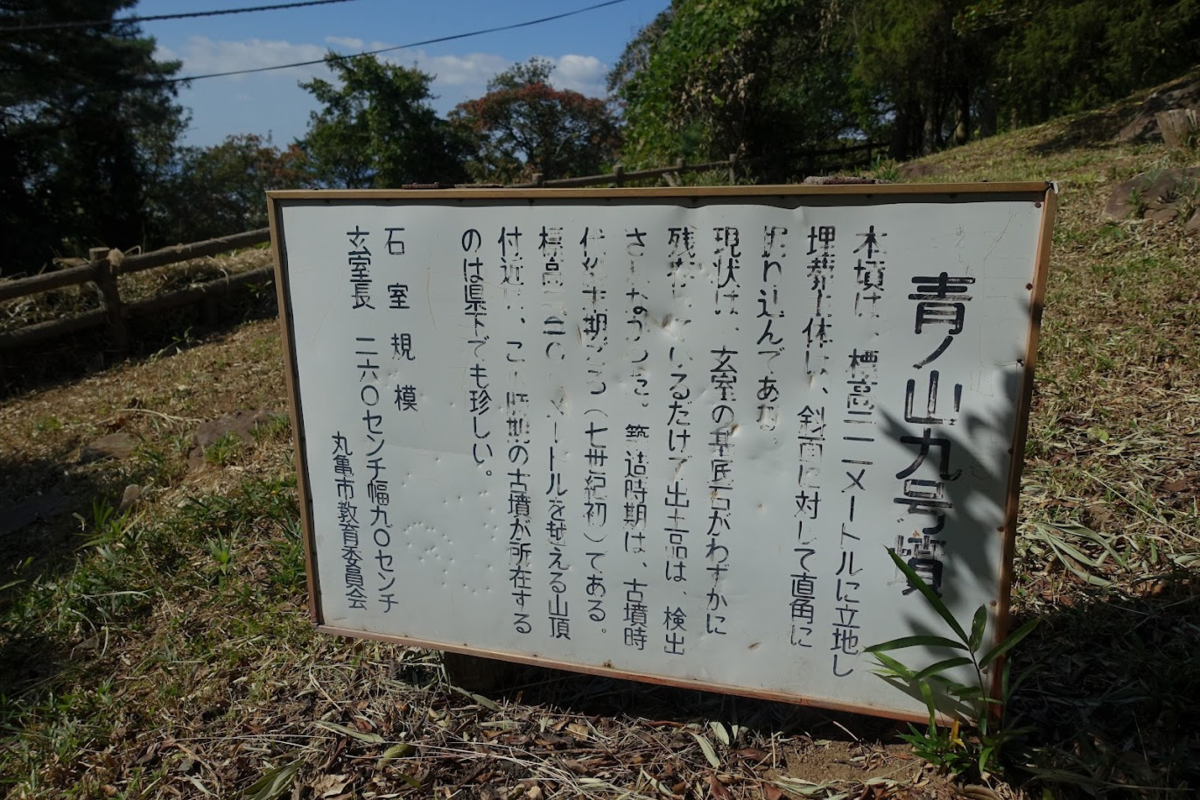 青ノ山九号墳
本墳は、標高二一一メートルに立地し
埋葬主体は、斜面に対して直角に
掘り込んである。
現状は、玄室の基底石がわずかに
残存しているだけで出土品は、検出
されなかった。築造時期は、古墳時
代終末期ごろ(七世紀初)である。
標高 メートルを越える山頂
付近に、この時期の古墳が所在する
のは県下でも珍しい。
石室規模
玄室長 二六〇センチ幅九〇センチ
丸亀市教育委員会